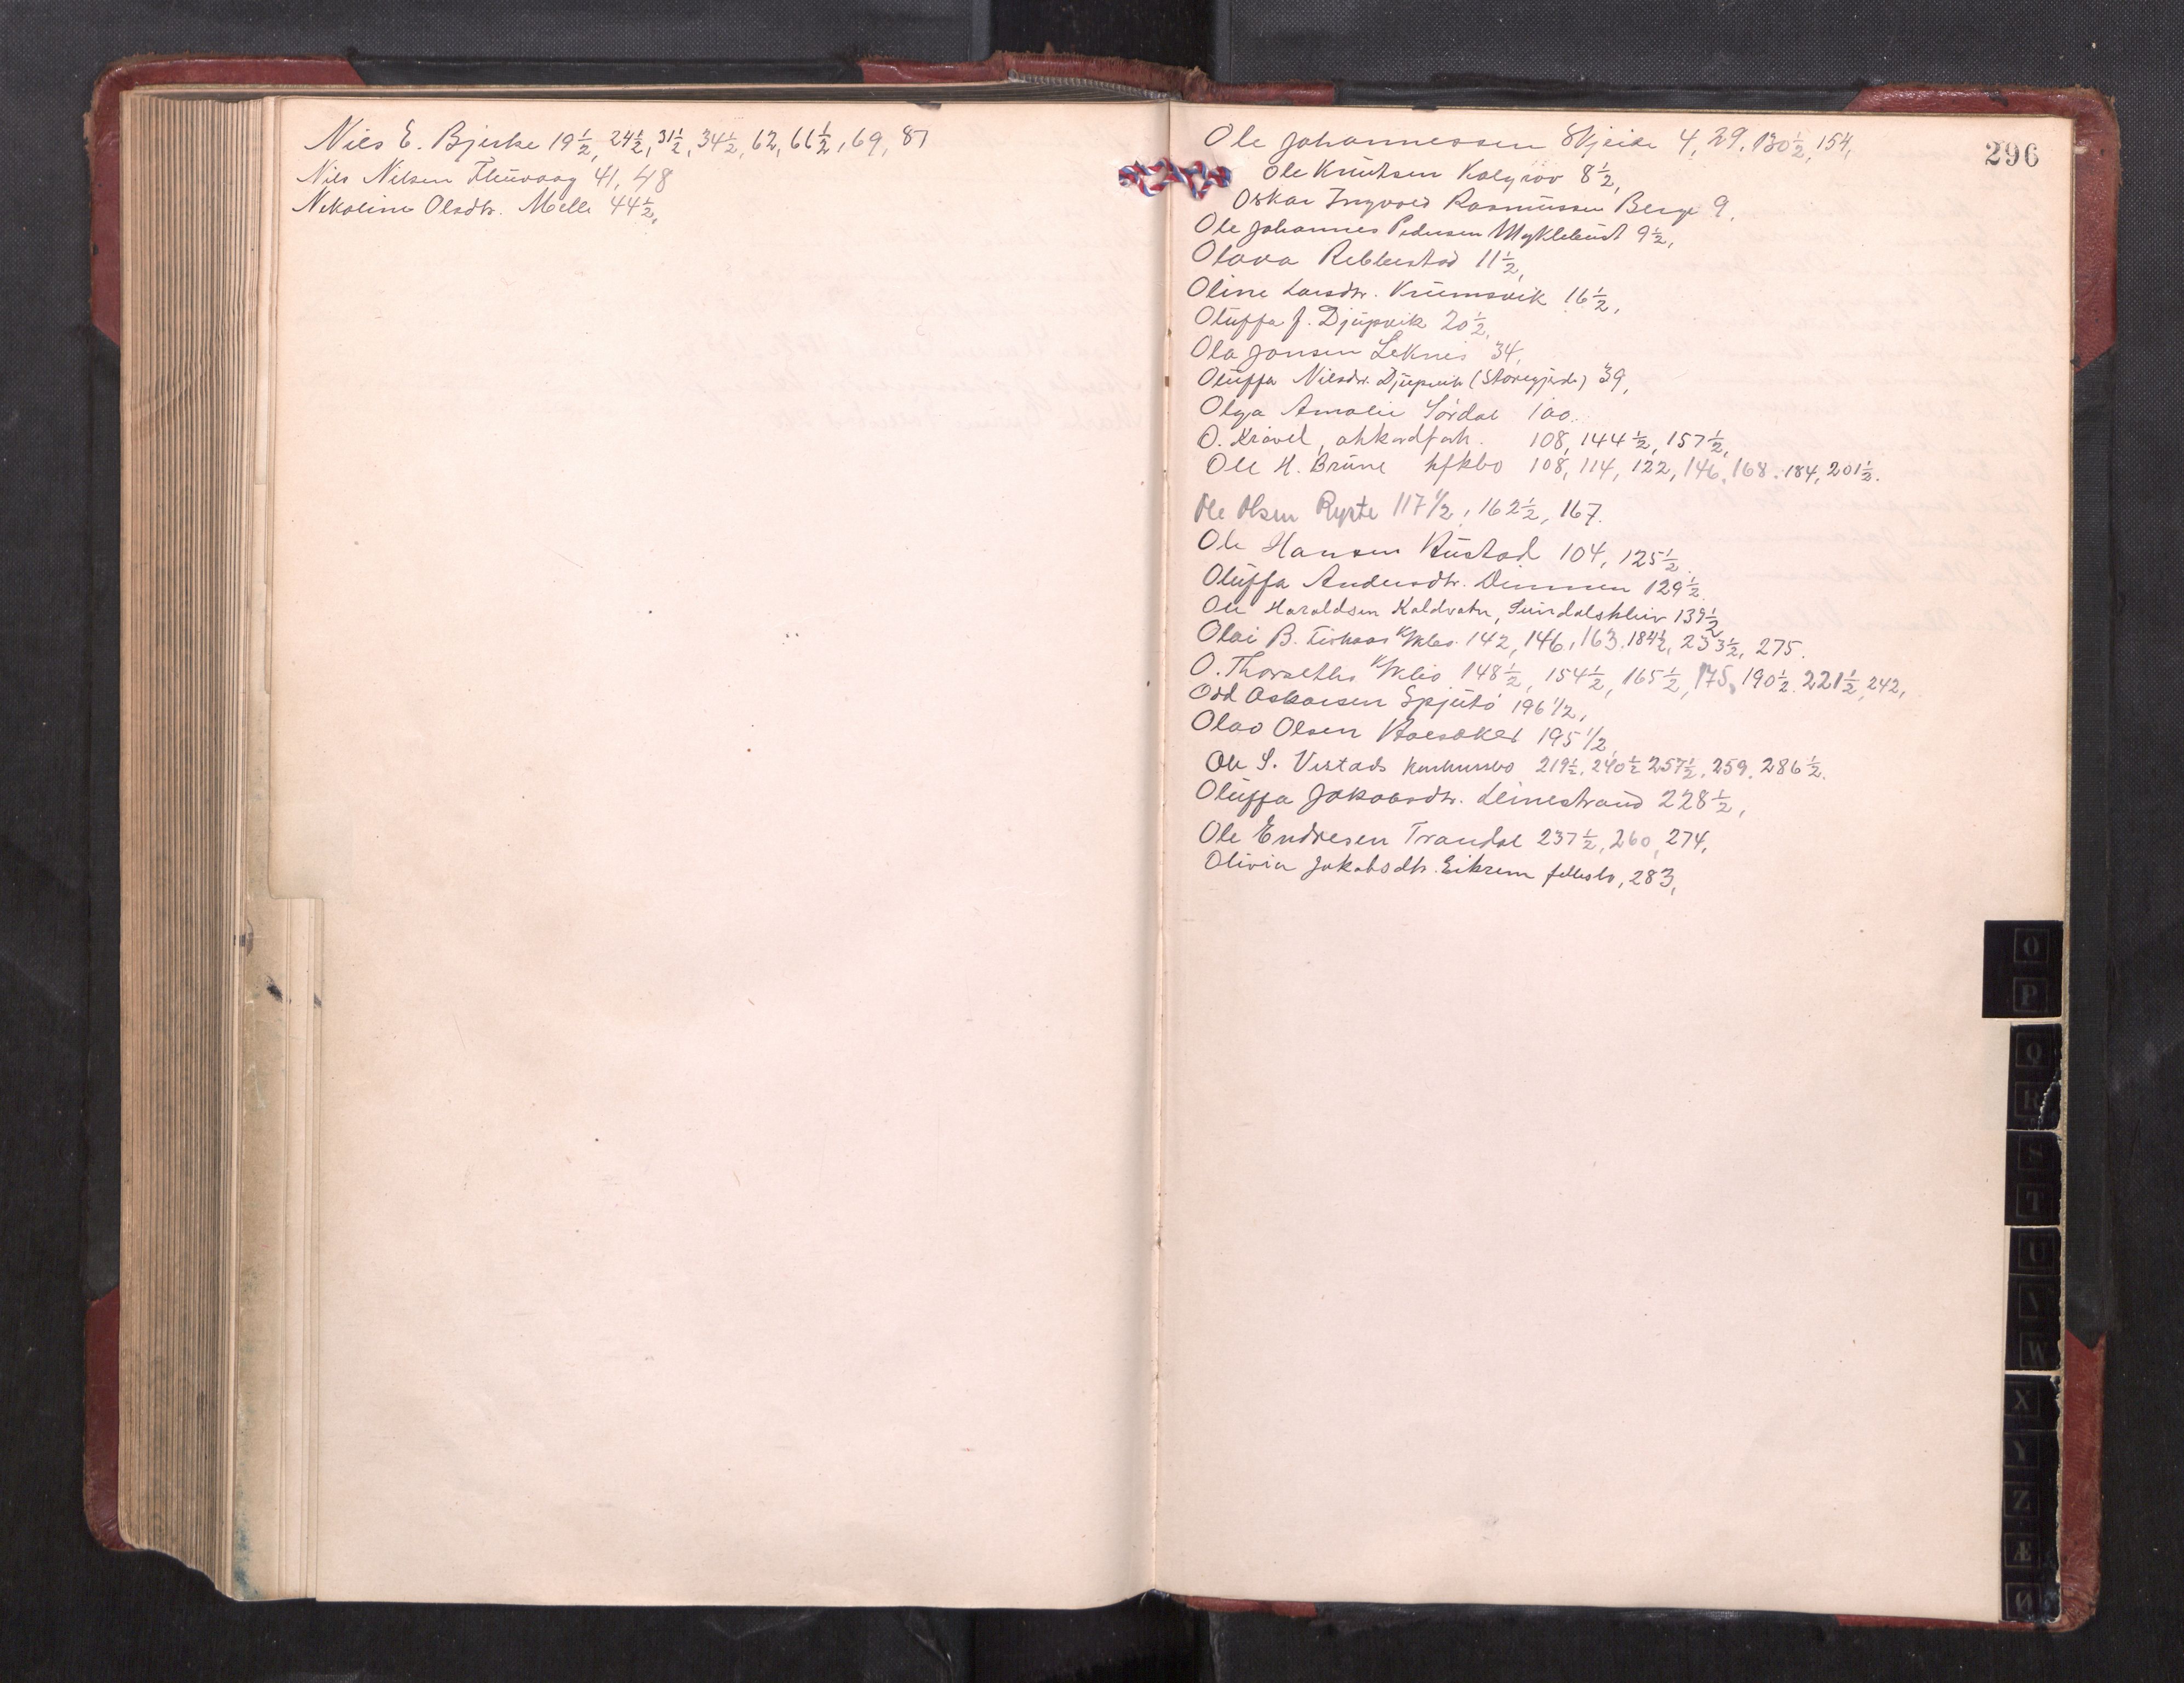 Nils E. Bjerke 19½, 24½, 31½, 34½, 62, 66½, 69, 87
Nils Nilsen Fluvaag 41, 48
Nikoline Olsdtr. Melle 44½,
296
Ole Johannessen Skjeide 4, 29, 130½, 154,
Ole Knutsen Kolgrov 8½,
Oskar Ingvald Rasmussen Berge 9,
Ole Johannes Pedersen Myklebust 9½,
Olava Rebbestad 11½,
Oline Larsdtr. Krumsvik 16½,
Oluffa J. Djupvik 20½,
Ola Jonsen Leknes 34,
Oluffa Nilsdtr. Djupvik (Storegjerde) 39,
Olga Amalie Sørdal 100.
O. Kravel, akkordforh. 108, 144½, 157½,
Ole H. Brune kfkbo 108, 114, 122, 146, 168, 184, 201½.
Ole Olsen Ryste 117½, 162½, 167.
Ole Hansen Rustad 104, 125½.
Oluffa Andersdtr. Dimmen 129½.
Ole Haraldsen Kaldvatn, 139½
Olai B. 142, 146, 163, 184½, 233½, 275.
O. Thorseths 148½, 154½, 165½, 175, 190½, 221½, 242,
Odd Oskarsen Spjutø 196½,
Olav Olsen 195½,
Ole S. Vistads konkursbo 219½, 240½ 257½, 259, 286½.
Oluffa Jakobsdtr. Leinestrand 228½,
Ole Endresen Trandal 237½, 260, 274,
Olivia Jakobsdtr. Eikrem fellesbo, 283,
O
P
Q
R
S
T
U
V
W
X
Y
Z
Æ
Ø